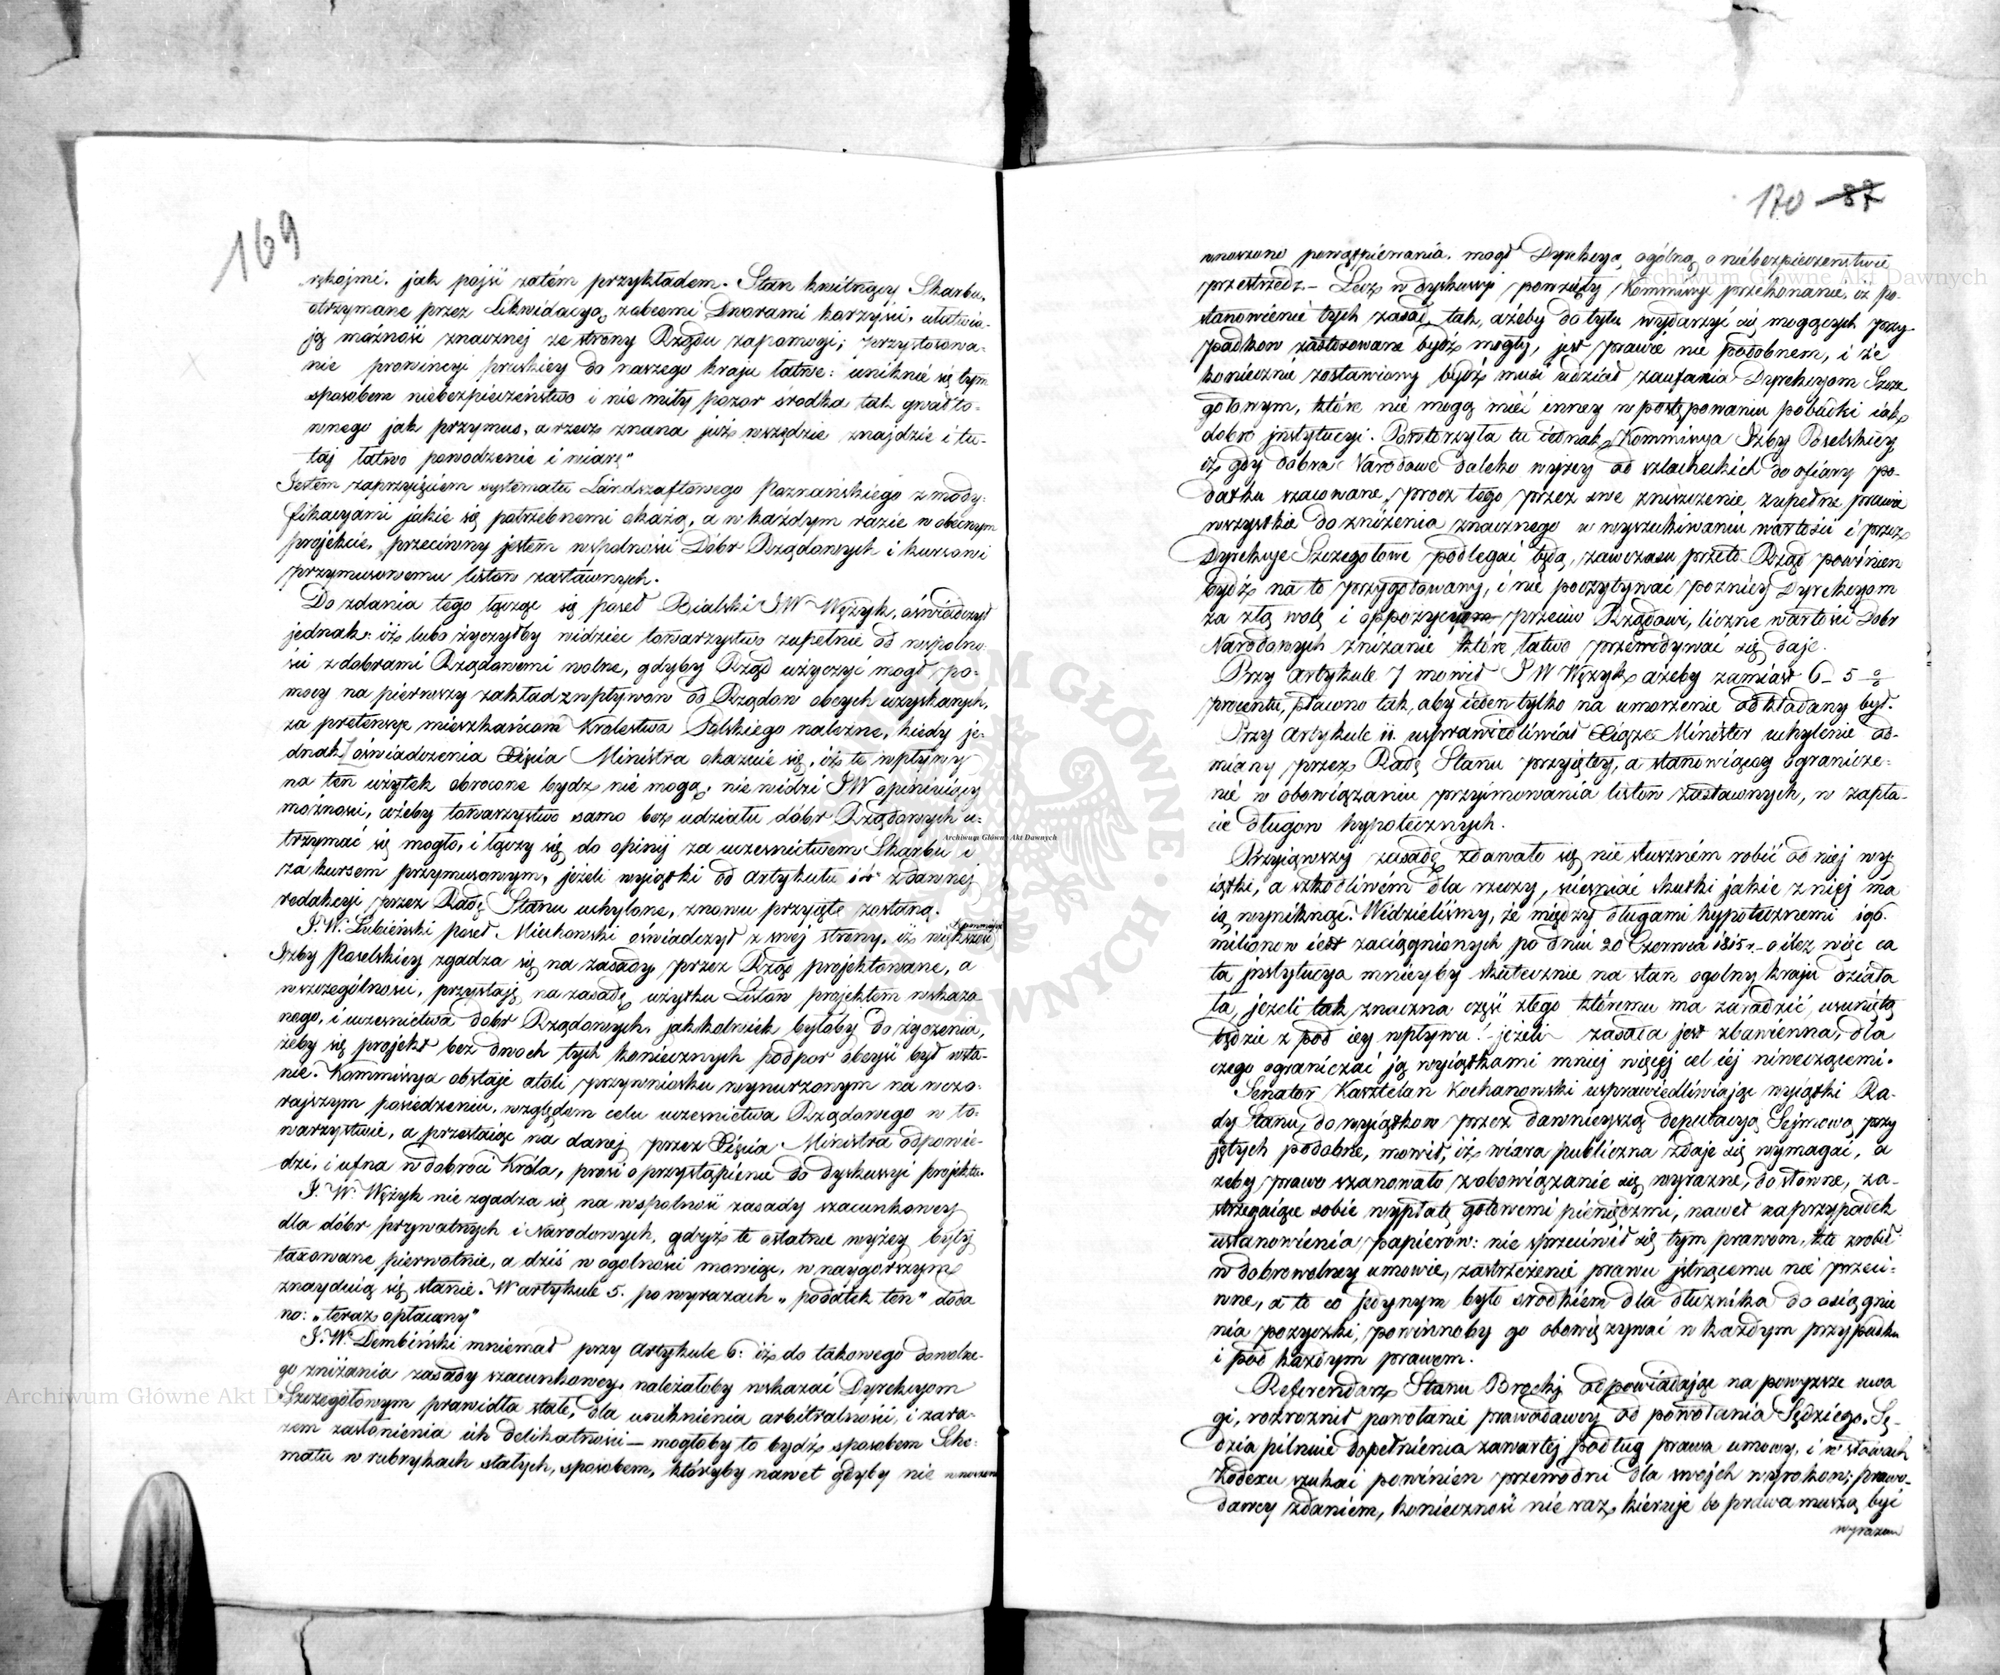 169
rękojmi, jak pójść zatém przykładem. Stan kwitnący Skarbu,
otrzymane przez Likwidacyą zobcemi Dworami korzyści, ułatwia-
ją możność znacznej ze strony Rządu zapomogi; przystosowa-
nie prowincyi pruskiey do naszego kraju łatwe: uniknie się tym
sposobem niebezpieczeństwo i nie miły pozor środka tak gwałto-
wnego jak przymus, a rzecz znana już wszędzie znajdzie i tu-
taj łatwo powodzenie i wiarę"
Jestem zaprzyjęciem systematu Landszaftowego Poznańskiego z mody-
fikacyami jakie się potrzebnemi okażą, a w każdym razie w obecnym
projekcie, przeciwny jestem wspólności Dóbr Rządowych i kursowi
przymusowemu listow zastawnych.
Do zdania tego łącząc się poseł Bialski JW Wężyk, oświadczył
jednak: iż lubo życzyłby widzieć towarzystwo zupełnie od wspólno-
ści z dobrami Rządowemi wolne, gdyby Rząd użyczyć mogł po-
mocy na pierwszy zakład z wpływow od Rządow obcych uzyskanych,
za pretensye mieszkańcom Krolestwa Polskiego należne, kiedy je-
dnak z oświadczenia Xięcia Ministra okazuie się, iż te wpływy
na ten użytek obrocone bydz nie mogą, nie widzi JW opiniuiący
możności, ażeby towarzystwo samo bez udziału dóbr Rządowych u-
trzymać się mogło, i łączy się do opinij za uczesnictwem Skarbu i
za kursem przymusowym, jeżeli wyiątki od artykułu 11º z dawnej
redakcyi przez Radę Stanu uchylone, znowu przyięte zostaną.
J. W. Łubieński poseł Miechowski oświadczył z swej strony, iż większość
Izby Poselskiey zgadza się na zasady przez Rząd projektowane, a
w szczególności, przystaję na zasadę użytku Listow projektem wskaza
nego, i uczesnictwa dobr Rządowych, jakkolwiek byłoby do życzenia,
żeby się projekt bez dwoch tych koniecznych podpor obejść był wsta-
nie. Kommissya obstaje atoli przy wniosku wynurzonym na wczo-
rajszym posiedzeniu, względem celu uczesnictwa Rządowego w to-
warzystwie, a przestaiąc na danej przez Xięcia Ministra odpowie-
dzi, i ufna w dobroci Króla, prosi o przystąpienie do dyskussyi projektu.
J. W. Wężyk nie zgadza się na wspolność zasady szacunkowey
dla dóbr prywatnych i Narodowych, gdyż te ostatnie wyżey były
taxowane pierwotnie, a dziś w ogolności mowiąc, w naygorszym
znayduią się stanie. W artykule 5. po wyrazach „podatek ten" doda
no: „teraz opłacany"
J. W. Dembiński mniemał przy artykule 6: iż do takowego dowolne-
go zniżania zasady szacunkowey, należałoby wskazać Dyrekcyom
Szczegółowym prawidła stałe, dla uniknienia arbitralności, i zara-
zem zasłonienia ich delikatności — mogłoby to bydź sposobem Sche-
matu w rubrykach stałych, sposobem, któryby nawet gdyby nie wnoszono
170 87
wnoszono powątpiewania, mogł Dyrekcyą ogólną o niebezpieczeństwie
przestrzedz. — Lecz w dyskussyi powzięty Kommissyi przekonanie, iż po-
stanowienie tych zasad tak, ażeby do tylu wydarzyć się mogących przy-
padkow zastosowane bydz mogły, jest prawie nie podobnem, i że
koniecznie zostawiony bydź musi udział zaufania Dyrekcyom Szcze
gołowym, które nie mogą mieć inney w postępowaniu pobudki iak
dobro jnstytucyi. Powtorzyła tu iednak Kommissya Izby Poselskiey
iż gdy dobra Narodowe daleko wyżey od szlacheckich do ofiary po-
datku szacowane, procz tego przez swe zniszczenie zupełne prawie
wszystkie do zniżenia znacznego w wyszukiwaniu wartości i przez
Dyrekcye Szczegołowe podlegać będą, zawczasu przeto Rząd powinien
bydź na to przygotowany, i nie poczytywać pozniey Dyrekcyom
za złą wolę i oppozycyą przeciw Rządowi, liczne wartości Dobr
Narodowych zniżanie które łatwo przewidywać się daje.
Przy artykule 7 mowił JW Wężyk ażeby zamiast 6 – 5 %
procentu, płacono tak, aby ieden tylko na umorzenie odkładany był.
Przy artykule 11. usprawiedliwiał Xiąże Minister uchylenie od-
miany przez Radę Stanu przyiętey, a stanowiącey ogranicze-
nie w obowiązaniu przyjmowania listow zastawnych, w zapła-
cie długow hypotecznych.
Przyiąwszy zasadę zdawało się nie słuszném robić od niej wy
iątki, a szkodliwém dla rzeczy, ścieśniać skutki jakie z niej ma
ią wyniknąć. Widzieliśmy, że między długami hypotecznemi 196.
milionow iest zaciągnionych po dniu 20 Czerwca 1815 r. – o ileż więc ca
ta jnstytucya mnieyby skutecznie na stan ogolny kraju działa
ła, jeżeli tak znaczna część złego któremu ma zaradzić, usuniętą
będzie z pod iey wpływu! – jeżeli zasada jest zbawienna, dla
czego ograniczać ją wyiątkami mniej więcej cel iej niweczącemi.
Senator Kasztelan Kochanowski usprawiedliwiając wyiątki Ra-
dy Stanu, do wyiątkow przez dawnieyszą deputacyą Sejmową przy
jętych podobne, mowił, iż wiara publiczna zdaje się wymagać, a
żeby prawo szanowało zobowiązanie się wyrazne, dosłowne, za-
strzegaiące sobie wypłatę gotowemi pieniędzmi, nawet na przypadek
ustanowienia papierów: nie sprzeciwił się tym prawom, kto zrobił
w dobrowolney umowie, zastrzeżenie prawu jstnącemu nie przeci-
wne, a to co jedynym było srodkiem dla dłużnika do osiągnie
nia pozyczki, powinnoby go obowiązywać w każdym przypadku
i pod każdym prawem.
Referendarz Stanu Brocki odpowiadając na powyższe uwa
gi, rozroznił powołanie prawodawcy od powołania Sędziego. Sę-
dzia pilnuie dopełnienia zawartej podług prawa umowy, i w słowach
Kodexu szukać powinien przewodni dla swojch wyrokow; prawo-
dawcy zdaniem, konieczność nie raz kieruje bo prawa muszą być
wyrazem